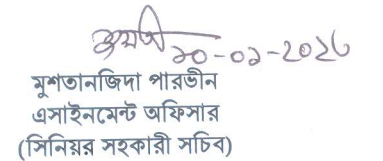 মুশতানজিদা পারভীন
এসাইনমেন্ট অফিসার
(সিনিয়র সহকারী সচিব)